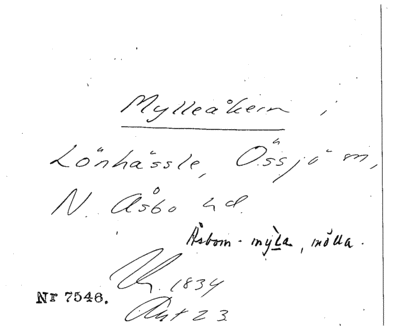 Mylleåkern i
Lönhässle, Össjö sn,
N. Åsbo hd.
Åsbom - myla, mölla.
1834
Nr 7546.
Akt 23